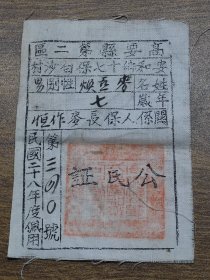 高要縣第二區
安和鄉十七保白沙村
姓名 麥五煥 性別 男
年歲 七
關係人 保長麥作恒
公民証
第三四〇號
民國二十八年度佩用